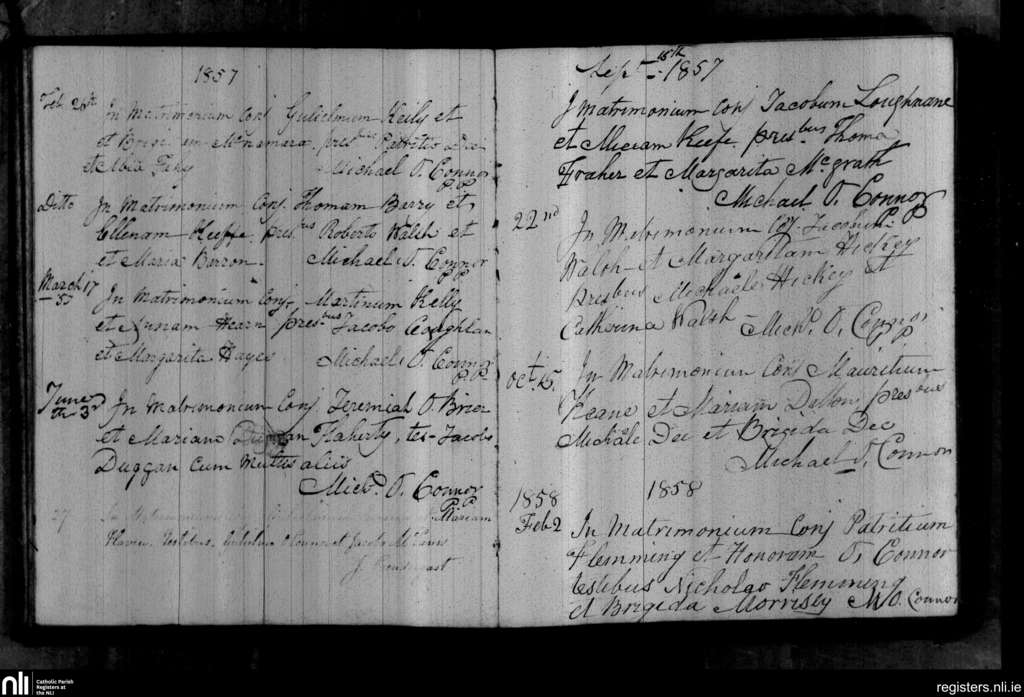 1857
Feb. 20th In Matrimonium Conj Gulielmum Keily et
et McNamara, presbus Patritio Dee
et Maria Fahy Michael O. Connor
P.P.
Ditto In Matrimonium Conj. Thomam Barry et
Ellenam Keeffe, presbus Roberto Walsh et
et Maria Barron. Michael O. Connor
P.P.
March 17
57 In Matrimonium Conj, Martinum Kelly
et Hearn presbus Jacobo Coughlan
et Margarita Hayes Michael O. Connor
P.P.
June
th 3d In Matrimonium Conj. Jeremiah O. Brien
et Mariam Flaherty, tes- Jacobo
Duggan cum multis aliis
Michl. O. Connor
P.P.
27 In Matrimonium Mariam
Testibus et Jacobo
Sept 15th 1857
I Matrimonium Conj Jacobum Loughnane
et Miriam Keefe, presbus Thoma
Fraher et Margarita McGrath
Michael O. Connor
P.P.
22nd In Matrimonium Conj Jacobum
Walsh et Margaritam Hickey
presbus Michaele Hickey et
Catherina Walsh Michl. O. Connor
P
Oct. 15. In Matrimonium Conj Mauritium
Keane et Mariam Dillon, presbus
Michale Dee et Brigida Dee
Michael O. Connor
1858
1858
Feb 2 In Matrimonium Conj Patritium
Flemming et Honoram O, Connor
testibus Nicholao Flemming
et Brigida Morrissy M O. Connor
nli Catholic Parish
Registers at
the NLI
registers.nli.ie